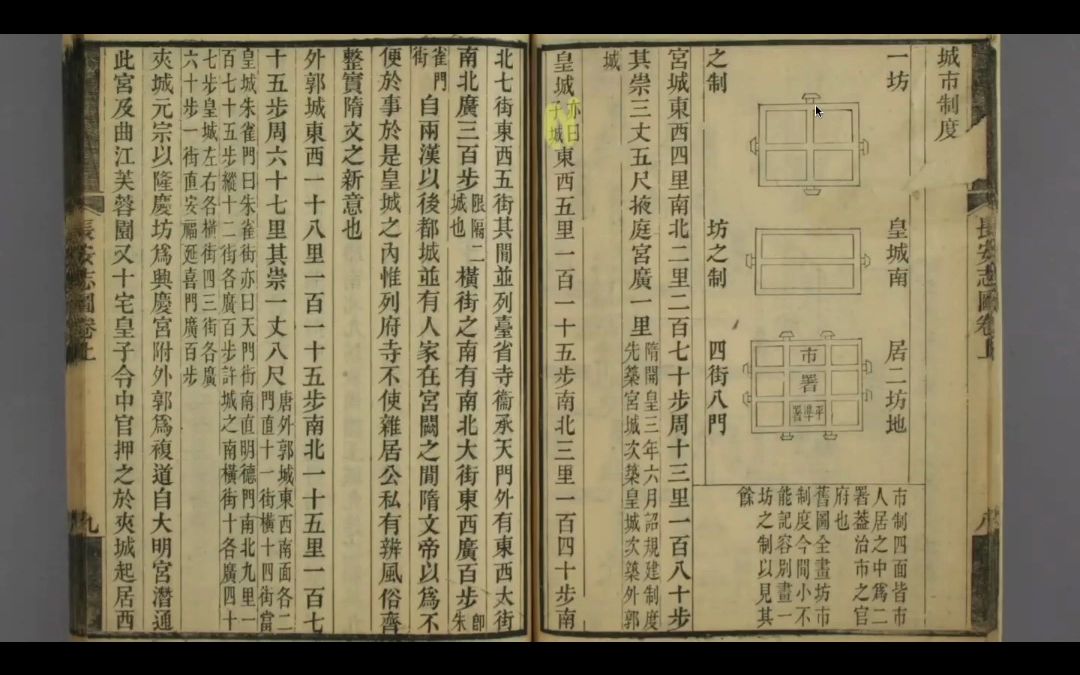 長安志圖卷上
八
城市制度
一坊
皇城南
居二坊地
市
署
平準署
之制
坊之制
四街八門
市制四面皆市
人居之中爲二
署葢治市之官
府也
舊圖全畫坊市
制度今間小不
能記容別畫一
坊之制以見其
餘
宮城東西四里南北二里二百七十步周十三里一百八十步
其崇三丈五尺掖庭宮廣一里隋開皇三年六月詔規建制度先築宮城次築皇城次築外郭
城
皇城亦曰子城東西五里一百一十五步南北三里一百四十步南
北七街東西五街其閒並列臺省寺衞承天門外有東西大街
南北廣三百步限隔二城也橫街之南有南北大街東西廣百步卽朱
雀門街自兩漢以後都城並有人家在宮闕之間隋文帝以爲不
便於事於是皇城之內惟列府寺不使雜居公私有辨風俗齊
整實隋文之新意也
外郭城東西一十八里一百一十五步南北一十五里一百七
十五步周六十七里其崇一丈八尺唐外郭城東西南面各二門直十一街橫十四街當
皇城朱雀門曰朱雀街亦曰天門街南直明德門南北九里一
百七十五步縱十二街各廣百步許城之南橫街十各廣四十
七步皇城左右各橫街四三街各廣
六十步一街直安福延喜門廣百步
夾城元宗以隆慶坊爲興慶宮附外郭爲複道自大明宮潛通
此宮及曲江芙蓉園又十宅皇子令中官押之於夾城起居西
長安志圖卷上
九